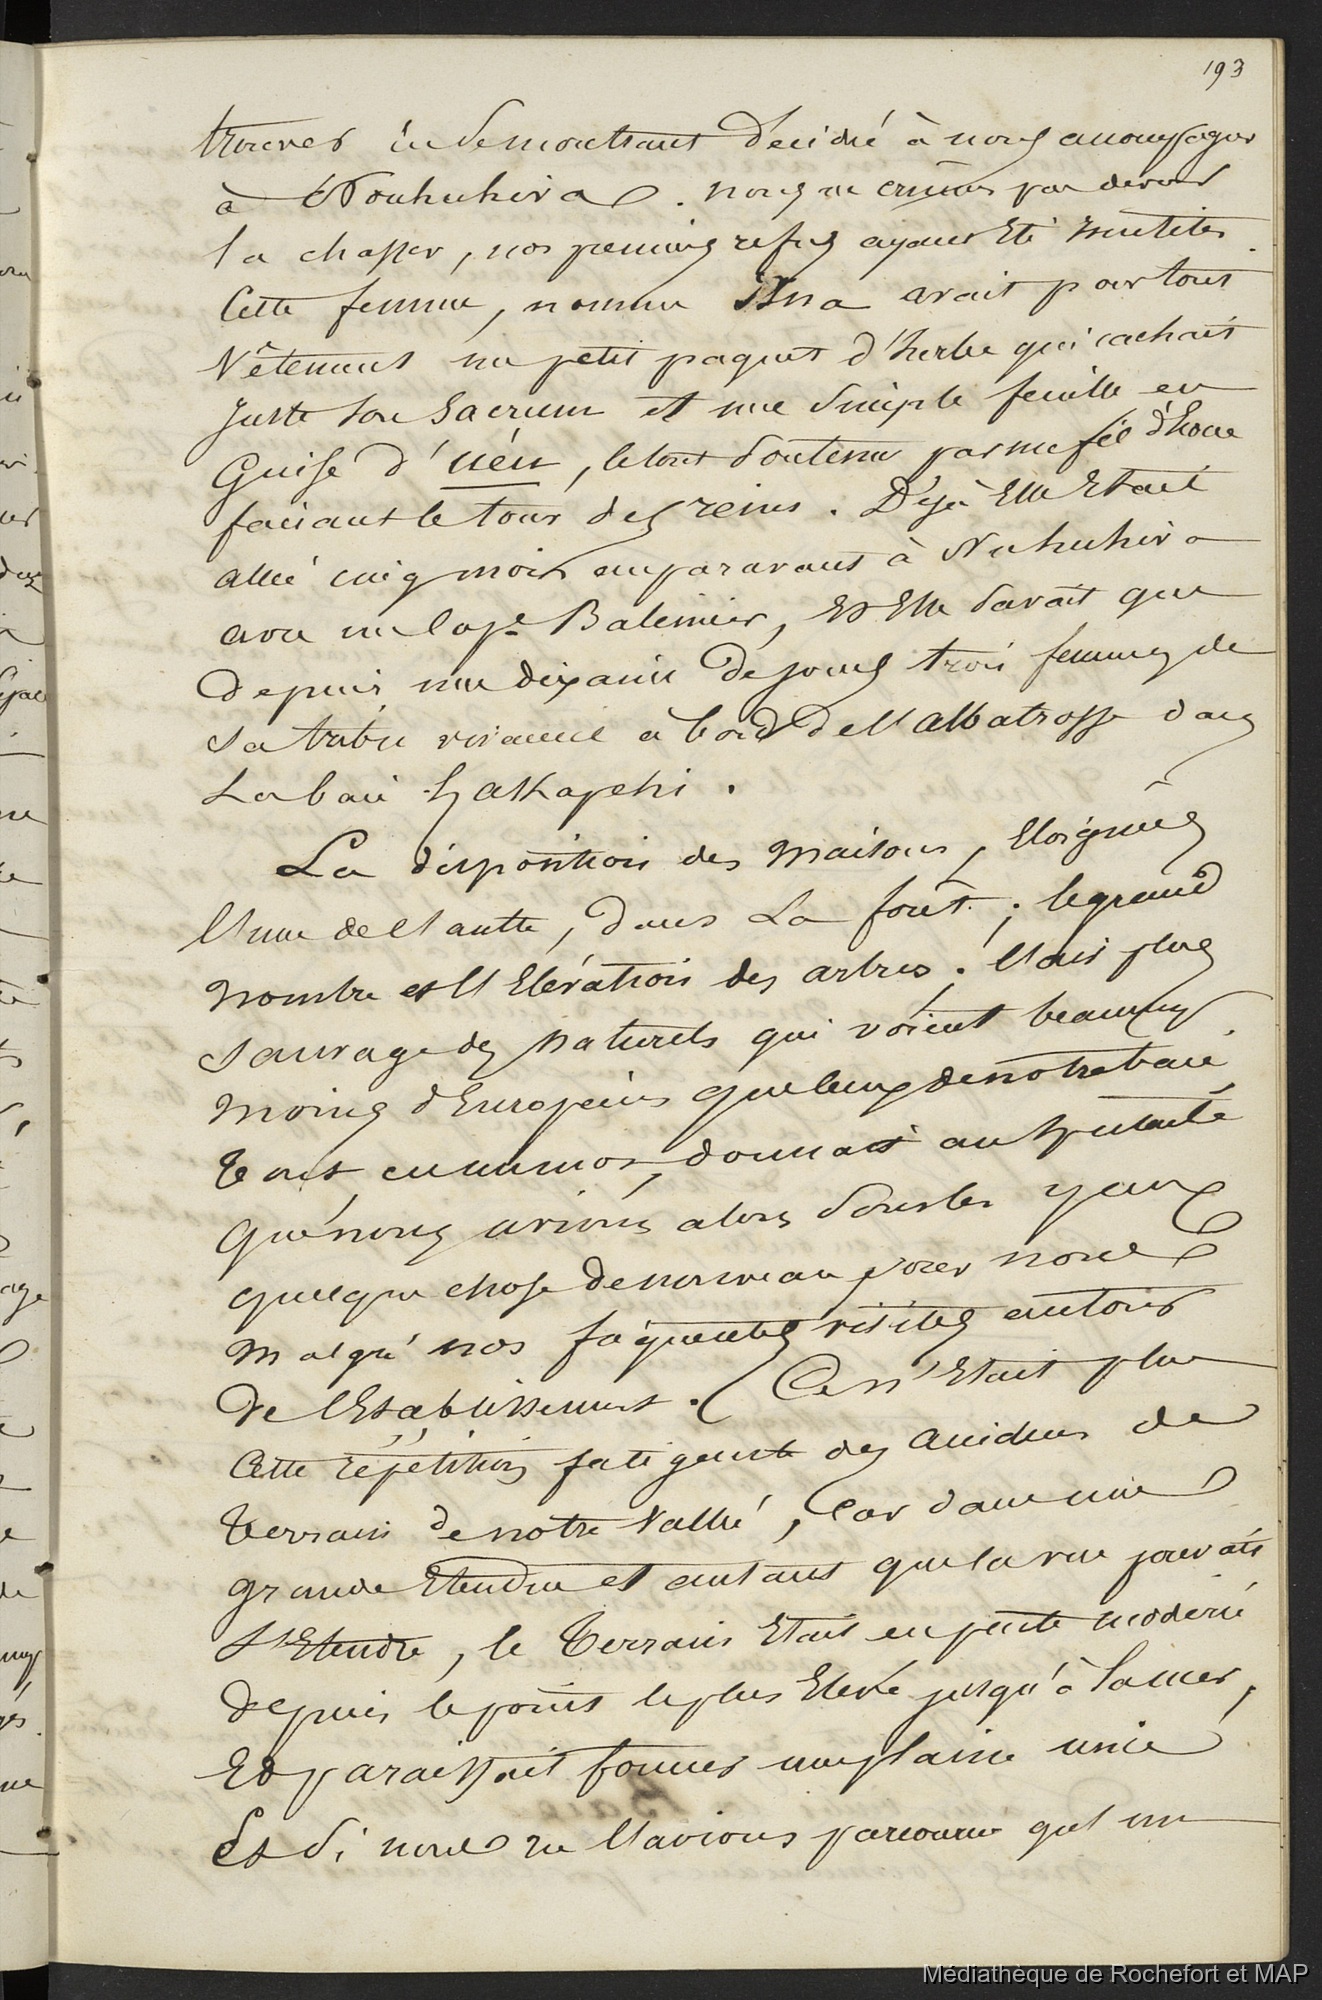 193
trouver en se montrant décidée à nous accompagner
à Nouhuhiva. nous ne crûmes pas devoir
la chasser, nos premiers refus ayant Eté inutiles.
Cette femme, nommée avait pour tout
Vêtement un petit paquet d'herbe qui cachait
juste son Sacrum et une Simple feuille en
Guise d'uéu, le tout Soutenu par un fil
faisant le tour des reins. Déjà Elle Etait
allée cinq mois auparavant à Nuhuhiva
avec un Cape Baleinier, Et Elle Savait que
depuis une dixaine de jours trois femmes de
sa tribu vivaient à bord de l'albatrosse dans
La baie hakapehi.
La disposition des Maisons, Eloignées
l'une de l'autre, dans La forêt; le grand
nombre et l'Elévation des arbres; l'air plus
Sauvage des Naturels qui voient beaucoup
moins d'Européens que ceux de notre baie,
Tout, en un mot, donnait au Spectacle
que nous avions alors Sous les yeux
quelque chose de nouveau pour nous
malgré nos fréquentes visites autour
de l'Etablissement. Ce n'Etait plus
Cette répétition fatigante des accidens de
Terrain de notre Vallée, Car dans une
grande Etendue et autant que la vue pouvait
S'Etendre, le Terrain Etait en pente modérée
depuis le point le plus Elevé jusqu'à la mer,
Et paraissait former une plaine unie
Et Si nous ne l'avions parcourue qu'en
Médiathèque de Rochefort et MAP